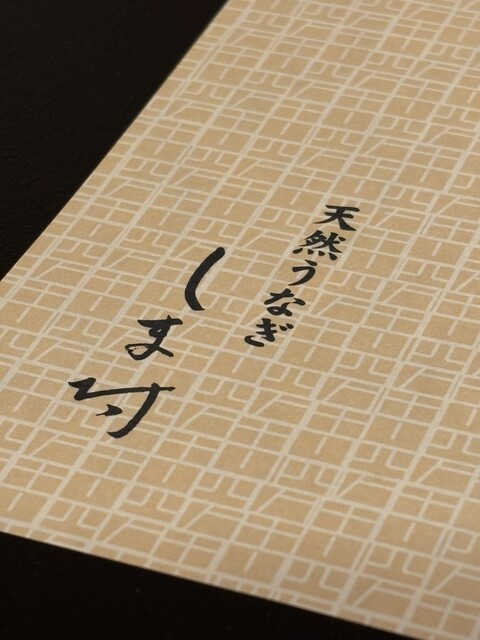 天然うなぎ
しま村